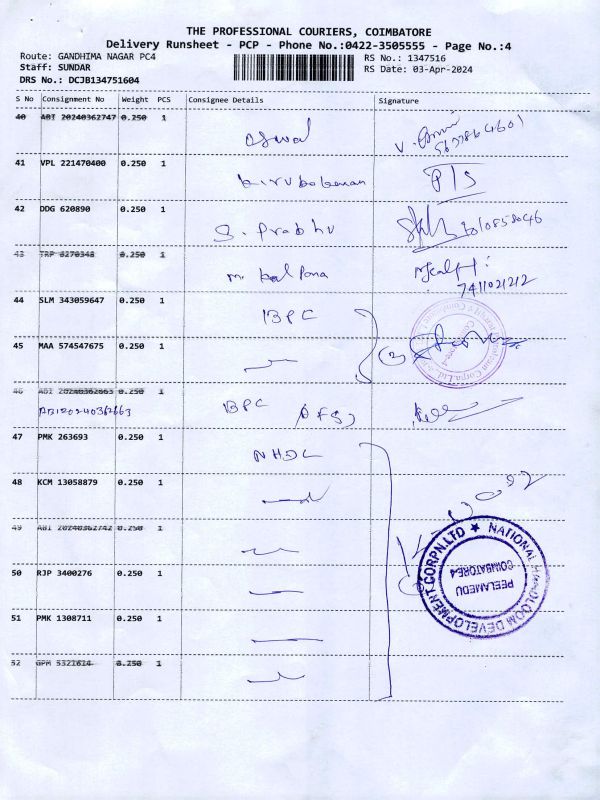 THE PROFESSIONAL COURIERS, COIMBATORE
Delivery Runsheet - PCP - Phone No.:0422-3505555 - Page No.:4
Route: GANDHIMA NAGAR PC4
RS No.: 1347516
Staff: SUNDAR
RS Date: 03-Apr-2024
DRS No.: DCJB134751604
S No Consignment No Weight PCS Consignee Details Signature
40 ABI 20240362747 0.250 1
41 VPL 221470400 0.250 1 P/S
42 DDG 620890 0.250 1 S. Prabhu
43 TRP 6270348 0.250 1 M. Kalpana
7411021212
44 SLM 343059647 0.250 1 BPC
45 MAA 574547675 0.250 1
46 ABI 20240362663 0.250 1 BPC
ABI20240362663
47 PMK 263693 0.250 1 NHDC
48 KCM 13058879 0.250 1
49 ABI 20240362742 0.250 1
50 RJP 3400276 0.250 1
51 PMK 1308711 0.250 1
52 GPM 5321614 0.250 1
NATIONAL HANDLOOM DEVELOPMENT CORPN.LTD ★
PEELAMEDU
COIMBATORE-4